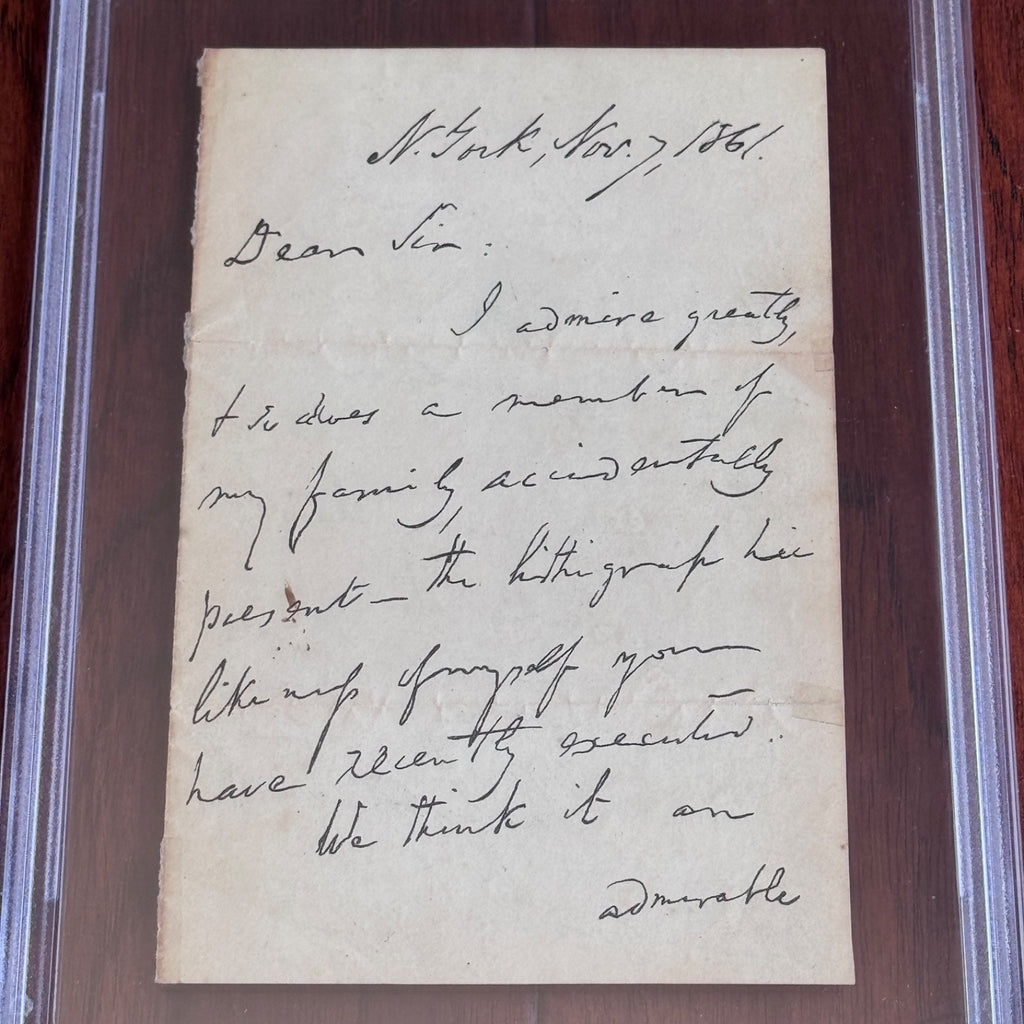 N. York, Nov. 7, 1861.
Dear Sir:
I admire greatly,
& so does a member of
my family, accidentally
present — the lithographic
likeness of myself you
have recently executed.
We think it an
admirable